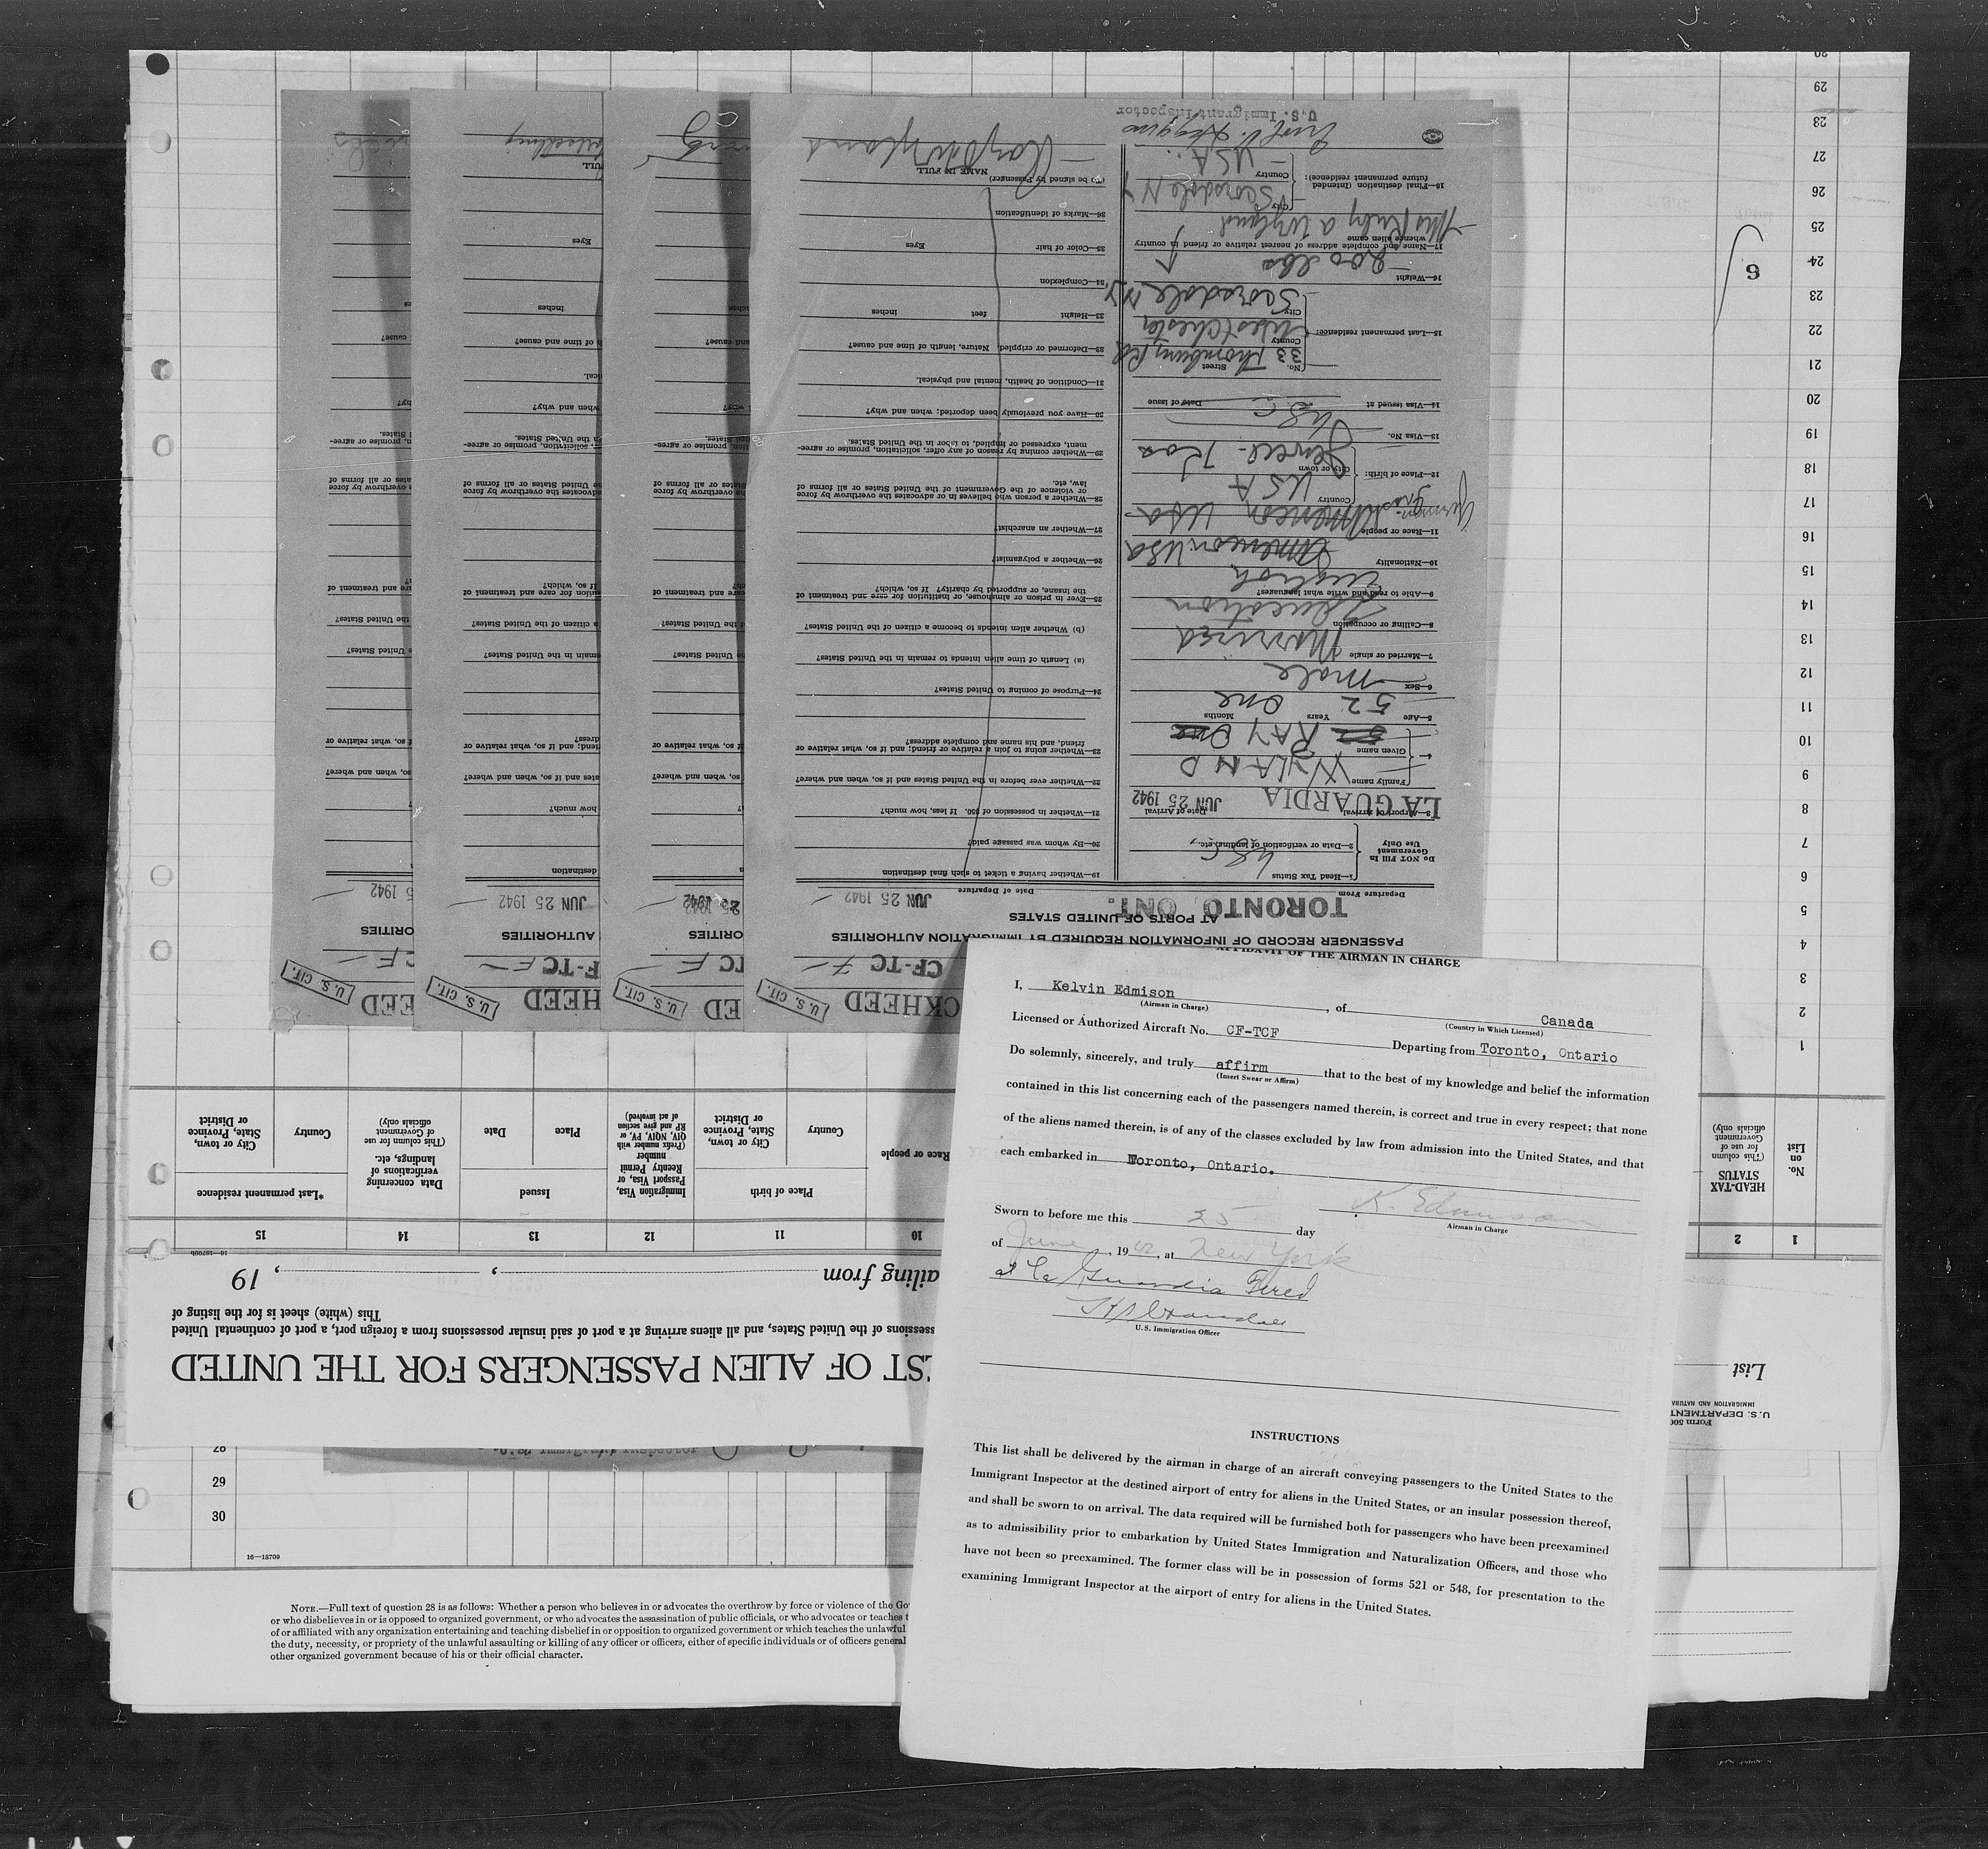 AFFIDAVIT OF THE AIRMAN IN CHARGE
I, Kelvin Edmison , of Canada
(Airman in Charge) (Country in Which Licensed)
Licensed or Authorized Aircraft No. CF-TCF Departing from Toronto, Ontario
Do solemnly, sincerely, and truly affirm that to the best of my knowledge and belief the information
(Insert Swear or Affirm)
contained in this list concerning each of the passengers named therein, is correct and true in every respect; that none
of the aliens named therein, is of any of the classes excluded by law from admission into the United States, and that
each embarked in Toronto, Ontario.
K. Edmison
Airman in Charge
Sworn to before me this 25 day
of June, 1942, at New York
at La Guardia
U.S. Immigration Officer
INSTRUCTIONS
This list shall be delivered by the airman in charge of an aircraft conveying passengers to the United States to the
Immigrant Inspector at the destined airport of entry for aliens in the United States, or an insular possession thereof,
and shall be sworn to on arrival. The data required will be furnished both for passengers who have been preexamined
as to admissibility prior to embarkation by United States Immigration and Naturalization Officers, and those who
have not been so preexamined. The former class will be in possession of forms 521 or 548, for presentation to the
examining Immigrant Inspector at the airport of entry for aliens in the United States.
CKHEED
U. S. CIT.
CF-TC F
PASSENGER RECORD OF INFORMATION REQUIRED BY IMMIGRATION AUTHORITIES
AT PORTS OF UNITED STATES
TORONTO, ONT. JUN 25 1942
Departure From Date of Departure
Do NOT Fill In
Government
Use Only
1—Head Tax Status USC
2—Data or verification of landing, etc.,
3—Airport of Arrival LA GUARDIA Date of Arrival JUN 25 1942
4— Family name WYLAND
Given name RAY
5—Age 52 Years One Months
6—Sex Male
7—Married or single Married
8—Calling or occupation Education
9—Able to read and write what languages? English
10—Nationality American USA
11—Race or people American USA
German
12—Place of birth: Country USA
City or town Jewell - Kas
13—Visa No. USC
14—Visa issued at Date of issue
15—Last permanent residence: No. 33 Thornbury Rd Street
County Westchester
City Scarsdale N.Y.
16—Weight 200 lbs
17—Name and complete address of nearest relative or friend in country
whence alien came
Mrs Ruby A Wyland
18—Final destination (Intended
future permanent residence): City Scarsdale N Y
Country USA
U.S. Immigrant Inspector
19—Whether having a ticket to such final destination
20—By whom was passage paid?
21—Whether in possession of $50. If less, how much?
22—Whether ever before in the United States and if so, when and where?
23—Whether going to join a relative or friend; and if so, what relative or
friend, and his name and complete address?
24—Purpose of coming to United States?
(a) Length of time alien intends to remain in the United States?
(b) Whether alien intends to become a citizen of the United States?
25—Ever in prison or almshouse, or institution for care and treatment of
the insane, or supported by charity? If so, which?
26—Whether a polygamist?
27—Whether an anarchist?
28—Whether a person who believes in or advocates the overthrow by force
or violence of the Government of the United States or all forms of
law, etc.
29—Whether coming by reason of any offer, solicitation, promise or agree-
ment, expressed or implied, to labor in the United States.
30—Have you previously been deported; when and why?
31—Condition of health, mental and physical.
32—Deformed or crippled. Nature, length of time and cause?
33—Height feet inches
34—Complexion
35—Color of hair Eyes
36—Marks of identification
(To be signed by Passenger)
NAME IN FULL
EED
U. S. CIT.
TC F
ORITIES
HEED
U. S. CIT.
F-TC F
AUTHORITIES
JUN 25 1942
destination
EED
U. S. CIT.
C F
ORITIES
5 1942
U.S. DEPARTMENT
IMMIGRATION AND NATURA
List
ST OF ALIEN PASSENGERS FOR THE UNITED
ssessions of the United States, and all aliens arriving at a port of said insular possessions from a foreign port, a part of continental United
This (white) sheet is for the listing of
ailing from , , 19
16—18709b
1 2 10 11 12 13 14 15
No.
on
List
HEAD-TAX
STATUS
(This column
for use of
Government
officials only)
Race or people
Place of birth
Country
City or town,
State, Province
or District
Immigration Visa,
Passport Visa, or
Reentry Permit
number
(Prefix number with
QIV, NQIV, PV, or
RP and give section
of act involved)
Issued
Place Date
Data concerning
verifications of
landings, etc.
(This column for use
of Government
officials only)
*Last permanent residence
Country
City or town,
State, Province
or District
1
2
3
4
5
6
7
8
9
10
11
12
13
14
15
16
17
18
19
20
21
22
23
24
25
26
27
28
29
6
28
29
30
16—18709
NOTE.—Full text of question 28 is as follows: Whether a person who believes in or advocates the overthrow by force or violence of the Go
or who disbelieves in or is opposed to organized government, or who advocates the assassination of public officials, or who advocates or teaches t
of or affiliated with any organization entertaining and teaching disbelief in or opposition to organized government or which teaches the unlawful
the duty, necessity, or propriety of the unlawful assaulting or killing of any officer or officers, either of specific individuals or of officers general
other organized government because of his or their official character.